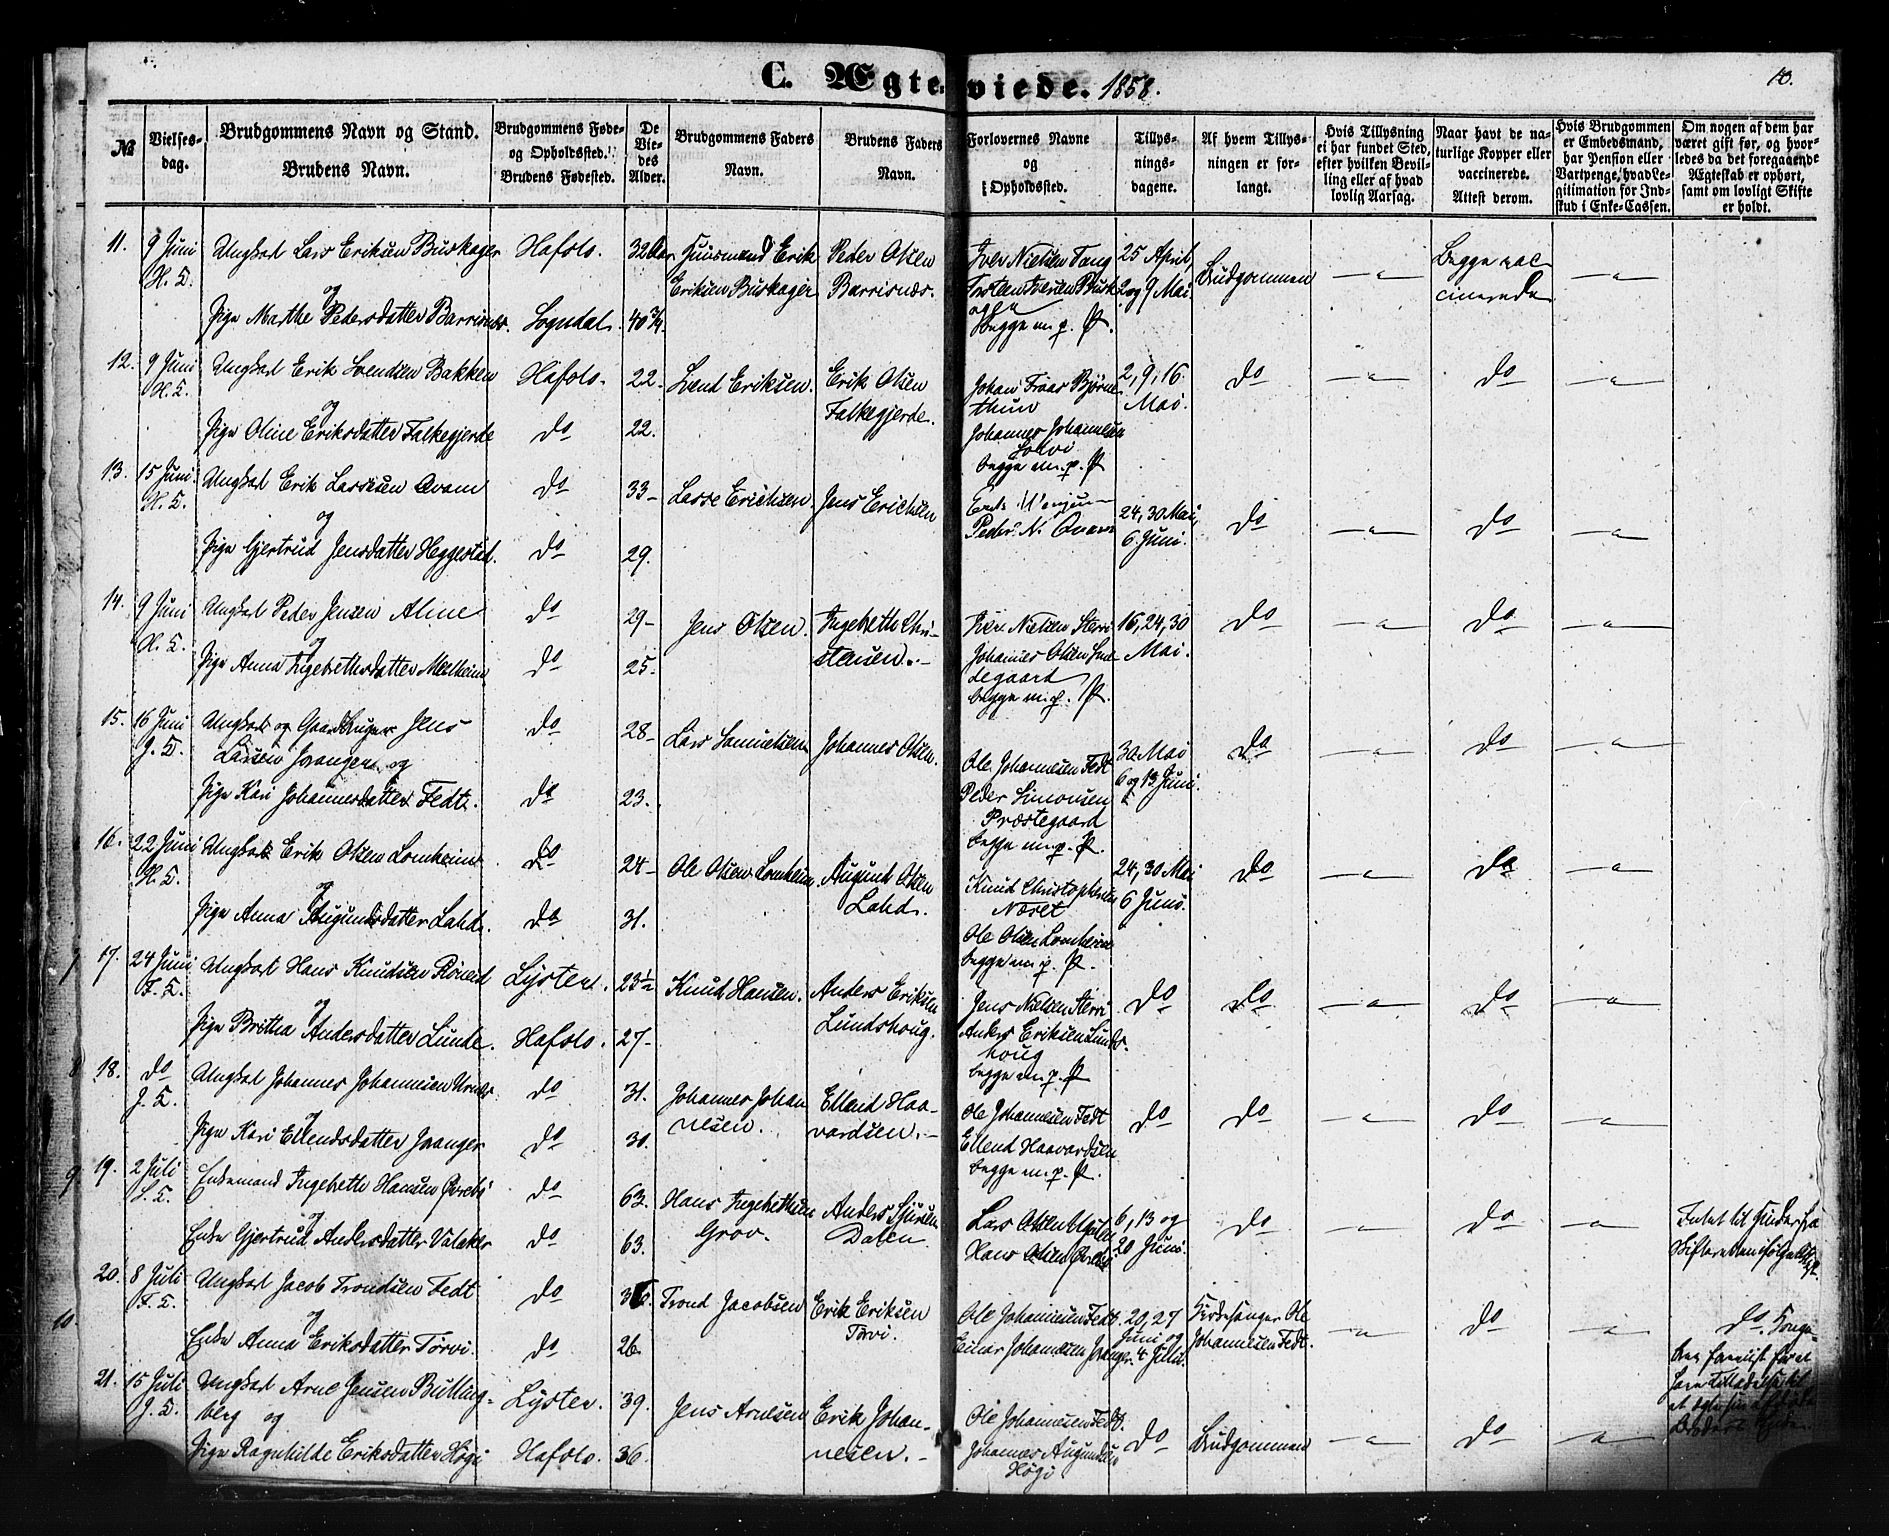 C. Ægteviede. 1858.
10.
№
Vielses-
dag.
Brudgommens Navn og Stand.
Brudens Navn.
Brudgommens Føde-
og Opholdssted.
Brudens Fødested.
De
Vie-
des
Alder.
Brudgommens Faders
Navn.
Brudens Faders
Navn.
Forlovernes Navne
og
Opholdssted.
Tillys-
nings-
dagene.
Af hvem Tillys-
ningen er for-
langt.
Hvis Tillysning
ei har fundet Sted,
efter hvilken Bevil-
ling eller af hvad
lovlig Aarsag.
Naar havt de na-
turlige Kopper eller
vaccinerede.
Attest derom.
Hvis Brudgommen
er Embedsmand,
har Pension eller
Vartpenge, hvad Le-
gitimation for Ind-
skud i Enke-Cassen.
Om nogen af dem har
været gift før, og hvor-
ledes da det foregaaende
Ægteskab er ophørt,
samt om lovligt Skifte
er holdt.
11. 9 Juni Ungkarl Lars Eriksen Buskager Hafslo. 32 Aar Huusmand Erik Peder Olsen Iver Nielsen Tang 25 April, Brudgommen Begge vac-
H. K. og Eriksen Buskager Barrisnæs. 2 og 9 Mai cinerede
Pige Marthe Pedersdatter Barrisnæs. Sogndal. 40 3/4 begge m. p. P.
12. 9 Juni Ungkarl Erik Svendsen Bakken Hafslo. 22. Svend Eriksen. Erik Olsen Johan 2, 9, 16. do do
H. K. og Falkegjerde. Mai.
Pige Oline Eriksdatter Falkegjerde do 22. Johannes Johannesen
begge m. p. P
13. 15 Juni Ungkarl Erik Lassesen Qvam do 33 Lasse Erichsen Jens Erichsen 24, 30 Mai, do do
H. K. og Peder N. Qvam 6 Juni.
Pige Gjertrud Jensdatter Heggestad. do 29.
14. 9 Juni Ungkarl Peder Jensen Alme do 29 Jens Olsen. Ingebreth Chri- Iver Nielsen 16, 24, 30 do do
H. K. og stensen. Johannes Olsen Mai.
Pige Anna Ingebrethsdatter Melheim do 25. degaard
begge m. p. P.
15. 16 Juni Ungkarl og Gaardbruger Jens do 28 Lars Samuelsen Johannes Olsen. Ole Johannesen Fedt 30 Mai do do
J. K. Larsen Joranger og 6 og 13 Juni.
Pige Kari Johannesdatter Fedt. do 23. Peder Simonsen
Præstegaard
begge m. p. P.
16. 22 Juni Ungkarl Erik Olsen Lomheim do 24 Ole Olsen Lomheim August Olsen Knud Christophersen 24, 30 Mai do do
H. K. og Lahd. Næset 6 Juni.
Pige Anna Augunsdatter Lahd. do 31. Ole Olsen Lomheim
begge m. p. P.
7 17. 24 Juni Ungkarl Hans Knudsen Røneid Lyster. 23½ Knud Hansen. Anders Eriksen Jens Nielsen do do do
F. K. og Lundshoug. Anders Eriksen Lunds-
Pige Brithа Andersdatter Lunde. Hafslo. 27 houg
begge m. p. P
8 18. do Ungkarl Johannes Johannesen Urnæs do 31. Johannes Johan- Ellend Haa- Ole Johannesen Fedt do do do
J. K. og nesen. vardsen. Ellend Haavardsen
Pige Kari Ellendsdatter Joranger do 30. begge m. p. P.
9 19. 2 Juli Enkemand Ingebreth Hansen Øvrebø do 63. Hans Ingebrethsen Anders Sjursen Lars Olsen 6, 13 og do do
S. K. og Grov. Dalen Hans Olsen 20 Juni.
Enke Gjertrud Andersdatter Vataker do 63.
20. 8 Juli Ungkarl Jacob Trondsen Fedt do 36. Trond Jacobsen Erik Eriksen Ole Johannesen Fedt. 20, 27 Kirkesanger Ole do do.
F. K. og Tørvi. Einar Johannesen Joranger. Juni og 4 Juli. Johannesen Fedt.
10 Enke Anna Eriksdatter Tørvi. do 26.
21. 15 Juli Ungkarl Arne Jensen Bulling- Lyster. 39. Jens Arnesen Erik Johan- Ole Johannesen Fedt. do Brudgommen do
J. K. berg og nesen. Johannes Augundsen
Pige Ragnhilde Eriksdatter Høgi Hafslo. 36. Høgi